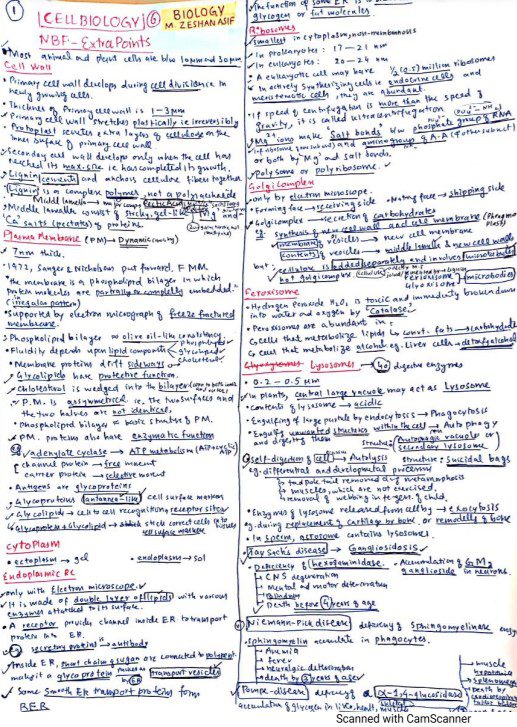 1
CELL BIOLOGY 6 BIOLOGY
M. ZESHAN ASIF
NBF - Extra Points
Most animal and plant cells are b/w 10μm and 30μm
Cell Wall
Primary cell wall develops during cell division in
newly growing cells.
Thickness of Primary cell wall is 1-3μm
Primary cell wall stretches plastically i.e irreversibly
Protoplast secretes extra layers of cellulose on the
inner surface of primary cell wall.
Secondary cell wall develops only when the cell has
reached its max. size i.e has completed its growth.
Lignin cements and anchors cellulose fibers together.
Lignin is a complex polymer, not a polysaccharide
Middle lamella consist of sticky, gel-like Mg and
Ca salts (pectates) of protein
Plasma Membrane (PM) → Dynamic
7nm thick.
1972, Singer & Nicholson put forward FMM.
the membrane is a phospholipid bilayer in which
protein molecules are partially or completly embedded
(irregular pattern)
Supported by electron micrograph of freeze fractured
membrane.
Phospholipid bilayer → olive oil-like consistency
Fluidity depends upon lipid components phospholipid
glycolipid
cholesterol
Membrane proteins drift sideways
Glycolipids have protective function.
Cholesterol is wedged into the bilayer
P.M. is assymmetrical i.e, the two surfaces and
the two halves are not identical.
Phospholipid bilayer = basic structure of P.M.
P.M. proteins also have enzymatic function
eg adenylate cyclase → ATP metabolism
channel protein → free movement
carrier protein → selective movement
Antigens are glycoproteins
Glycoproteins (antennae-like) cell surface markers
Glycolipids → cell to cell recognition, receptor sites
Glycoprotein + Glycolipid → stick correct cells into tissues
cell surface markers
Cytoplasm
ectoplasm → gel endoplasm → sol
Endoplasmic Re
only with Electron microscope.
It is made of double layer of lipids with various
enzymes attached to its surface.
A receptor provides channel inside ER to transport
protein into ER.
eg secretory protein is → antibody
Inside ER, short chain of sugar are connected to polypept.
making it a glycoprotein transport vesicles
by ER
Some Smooth ER transport proteins form
RER
The function of some ER is
glycogen or fat molecules
Ribosomes
smallest in cytoplasm, non-membranous
In prokaryotes: 17-21 nm
In eukaryotes: 20-24 nm
A eukaryotic cell may have (0.5) million ribosomes
In actively synthesizing cells ie endocrine cells and
meristematic cells, they are abundant.
If speed of centrifugation is more than the speed of
gravity, it is called ultracentrifugation
Mg ions make Salt bonds b/w phosphate group of RNA
and amino group of A.A (of other subunit)
or both by Mg and salt bonds.
Polysome or polyribosome.
Golgi complex
only by electron microscope.
Forming face → receiving side Maturing face → shipping side
Golgi complex → secretion of carbohydrates
eg. Synthesis of new cell wall and cell membrane
membrane of vesicles → new cell membrane
contents of vesicles → middle lamella & new cell walls
but cellulose is added separately and involves microtubules
not golgi complex
Peroxisome
Glyoxisome microbodies
Peroxisome
Hydrogen Peroxide H₂O₂ is toxic and immediatly broken down
into water and oxygen by "Catalase"
Peroxisomes are abundant in:
cells that metabolize lipids → conv. fats → carbohydrate
cells that metabolize alcohol eg. liver cells → detox of alcohol
Lysosomes → 40 digestive enzymes
0.2 - 0.5 μm
In plants, central large vacuole may act as Lysosome
Contents of lysosome → acidic
Engulfing of large particle by endocytosis → Phagocytosis
Engulfing unwanted structures within the cell → Autophagy
and digesting them structure: Autophagic vacuoles or
secondary lysosome
Self-digestion of cell → Autolysis structure: Suicidal bags
eg. differential and developmental processes
tadpole tail removed during metamorphosis
muscles, which are not exercised
removal of webbing in integ. of child.
Enzymes of lysosome released from cell by → exocytosis
eg. during replacement of cartilage by bone, or remodelling of bone
In sperm, acrosome contains lysosomes.
Tay Sachs disease → Gangliosidosis
Deficiency of hexosaminidase. Accumulation of GM₂
ganglioside in neurons.
CNS degeneration
Mental and motor deterioration
Blindness
Death before 4 years of age
Niemann-Pick disease deficiency of sphingomyelinase enzy
Sphingomyelin accumulate in phagocytes.
Anemia
fever
neurologic deterioration
death by 3 years of age
Pompe-disease deficiency of α-1,4-glucosidase
accumulation of glycogen in liver, heart, skeletal muscles
Scanned with CamScanner